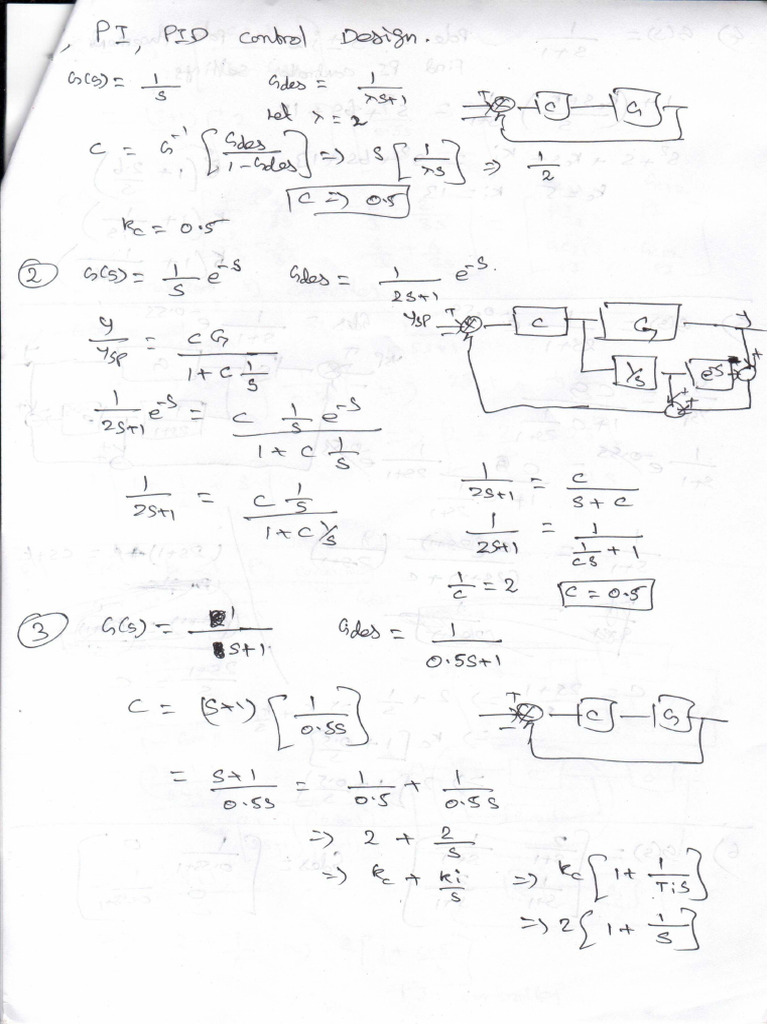 , PI, PID control Design.
G(s) = 1/s    Gdes = 1/(λs+1)
let λ = 2
C = G^-1 [Gdes/(1-Gdes)] => s [1/(λs)] => 1/2
C => 0.5
kc = 0.5
+ - C G
② G(s) = 1/s e^-s    Gdes = 1/(2s+1) e^-s.
y/ysp = CG/(1 + C 1/s)
ysp + - C G y
1/s e^-s - +
+ +
1/(2s+1) e^-s = (C 1/s e^-s)/(1 + C 1/s)
1/(2s+1) = (C 1/s)/(1 + C 1/s)
1/(2s+1) = C/(s + C)
1/(2s+1) = 1/(1/C s + 1)
1/C = 2    C = 0.5
③ G(s) = 1/(s+1)    Gdes = 1/(0.5s+1)
C = (s+1) [1/(0.5s)]
+ - C G
= (s+1)/(0.5s) = 1/0.5 + 1/(0.5s)
=> 2 + 2/s
=> kc + ki/s => kc [1 + 1/(Tis)]
=> 2 [1 + 1/s]